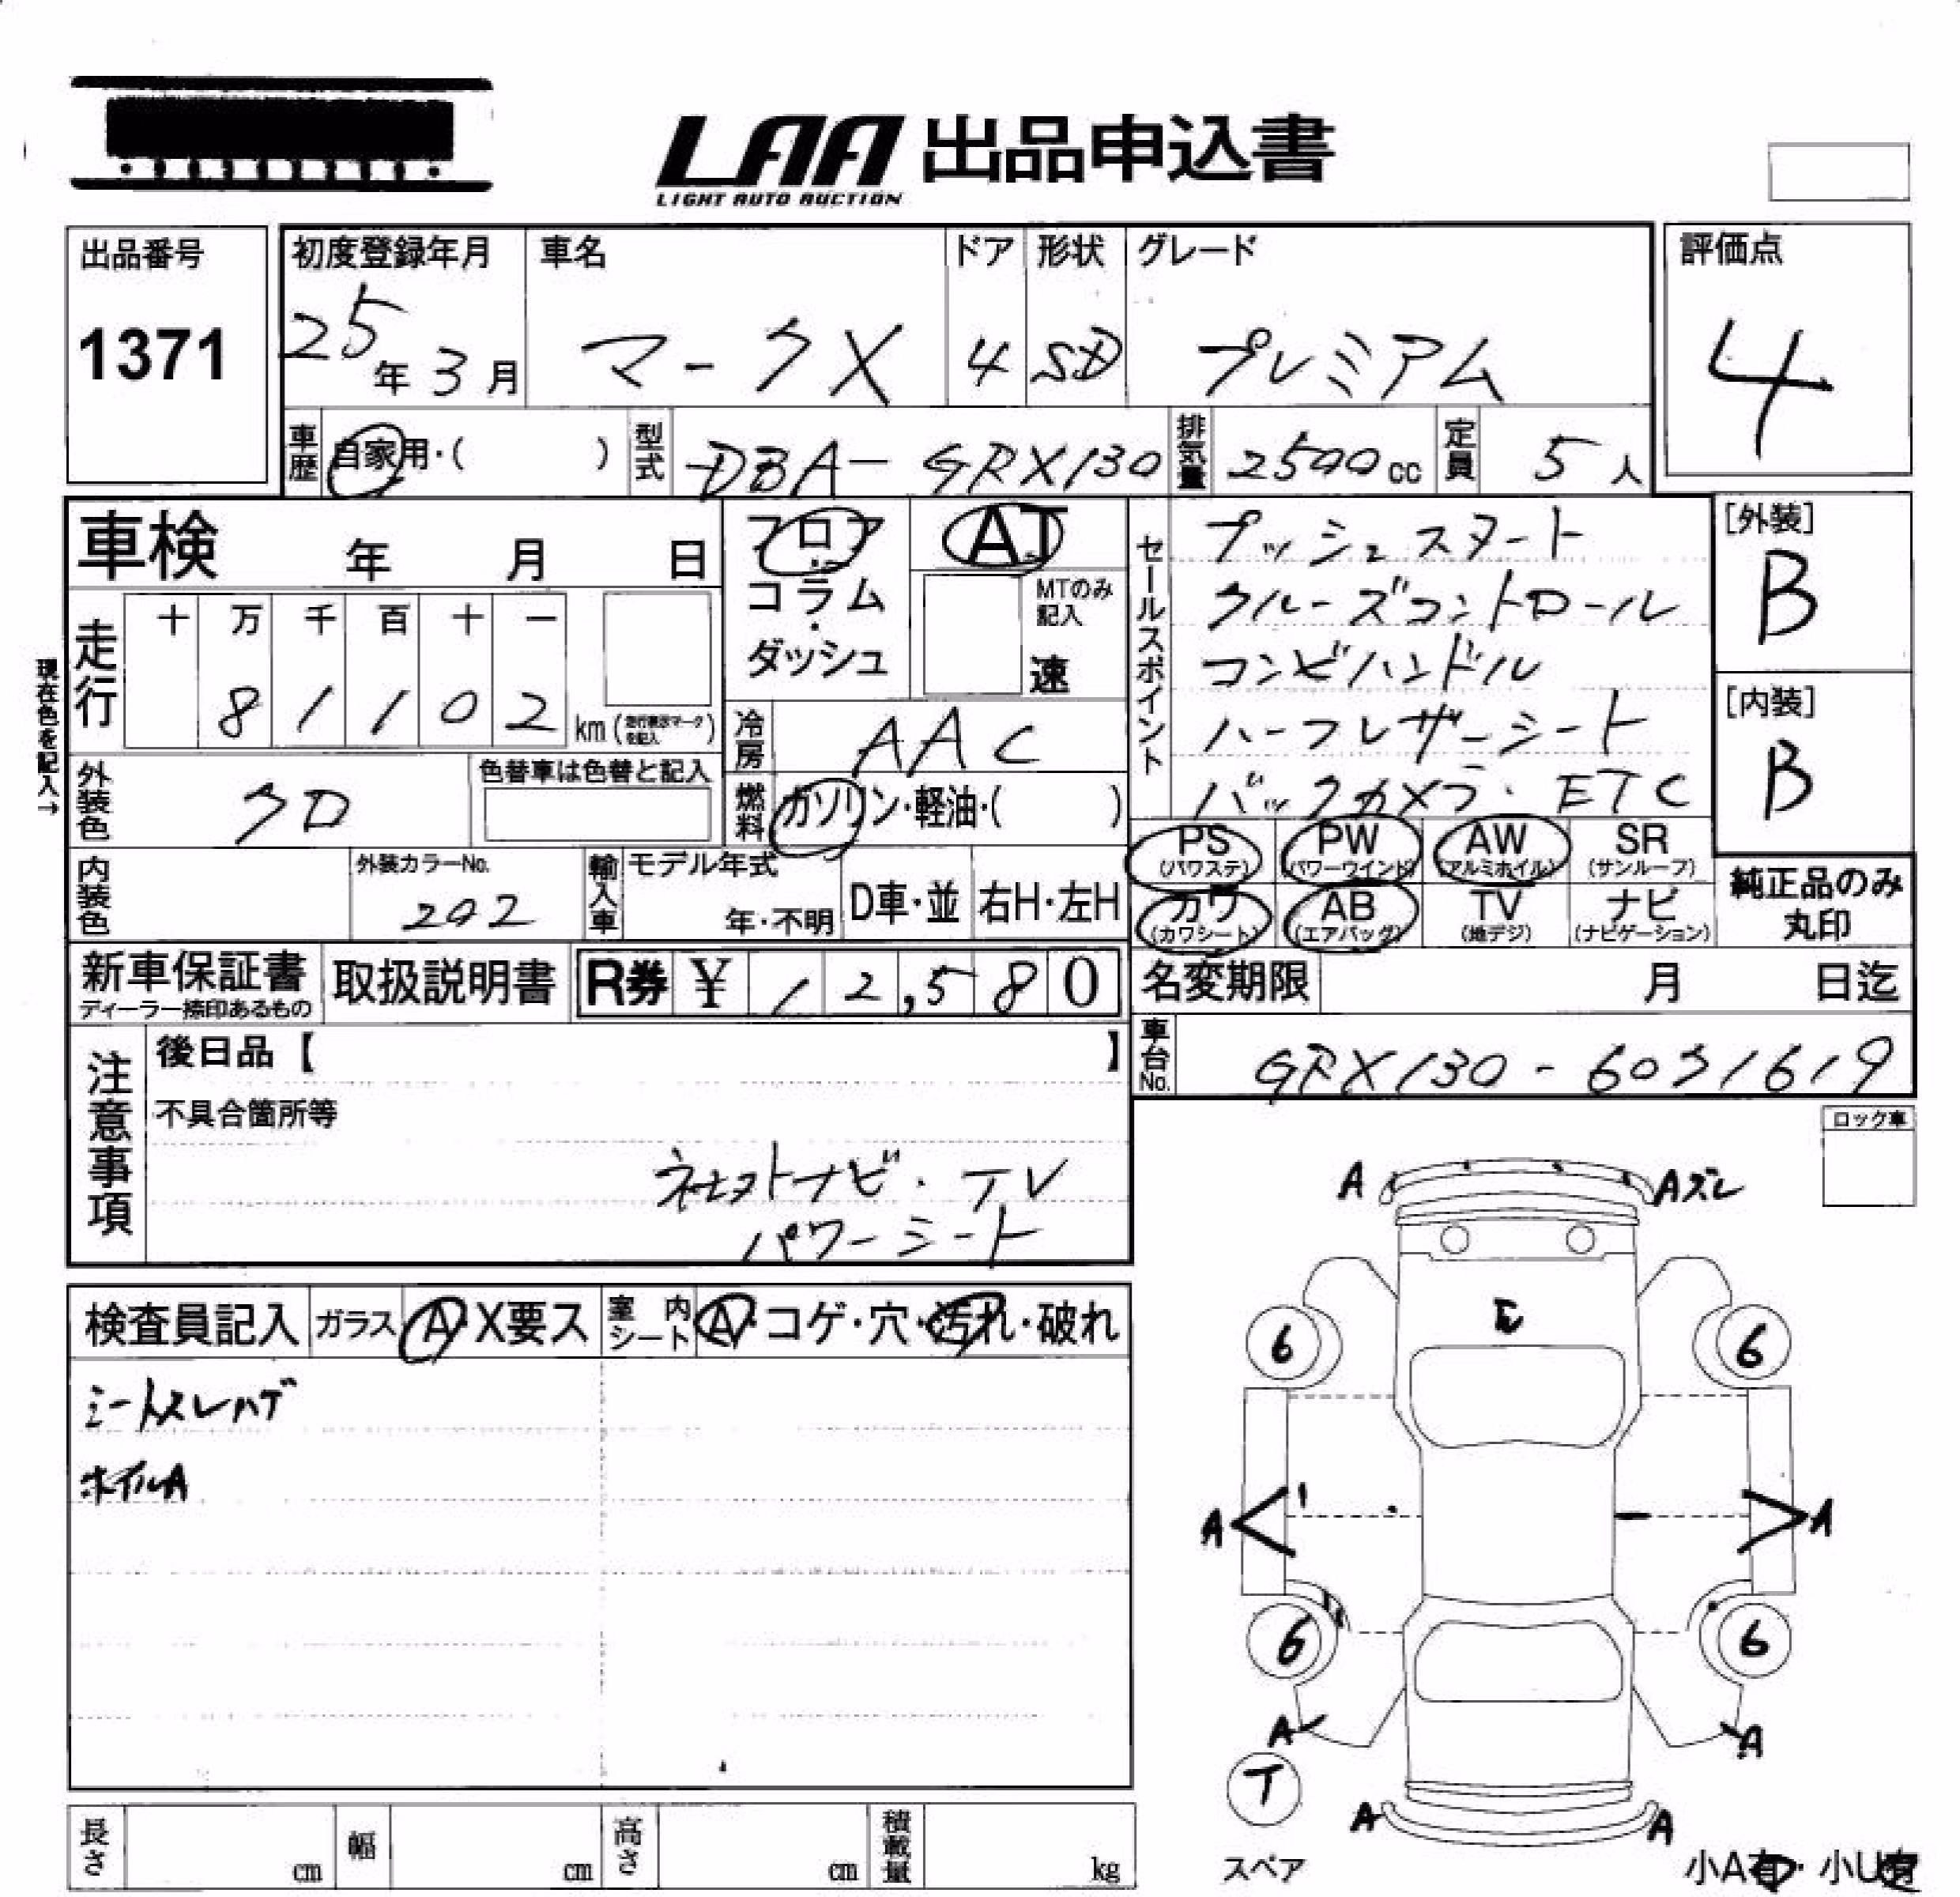 LAA 出品申込書
LIGHT AUTO AUCTION
出品番号
1371
初度登録年月
25年3月
車名
マークX
ドア
4
形状
SD
グレード
プレミアム
評価点
4
車歴 自家用・( )
型式 DBA-GRX130
排気量 2500cc
定員 5人
車検 年 月 日
フロア・コラム・ダッシュ
AT
MTのみ記入
速
セールスポイント
プッシュスタート
クルーズコントロール
コンビハンドル
ハーフレザーシート
バックカメラ・ETC
[外装]
B
[内装]
B
現在色を記入→
走行
十 万 千 百 十 一
8 1 1 0 2 km (走行表示マークを記入)
冷房 AAC
外装色 クロ
色替車は色替と記入
燃料 ガソリン・軽油・( )
PS (パワステ) PW (パワーウインド) AW (アルミホイル) SR (サンルーフ)
カワ (カワシート) AB (エアバッグ) TV (地デジ) ナビ (ナビゲーション)
純正品のみ丸印
内装色
外装カラーNo.
202
輸入車 モデル年式
年・不明
D車・並
右H・左H
新車保証書
ディーラー捺印あるもの
取扱説明書
R券 ¥ 12,580
名変期限 月 日迄
車台No. GRX130-6031619
注意事項
後日品【 】
不具合箇所等
ネットナビ・TV
パワーシート
ロック車
検査員記入 ガラス A・X要ス 室内シート A・コゲ・穴・汚れ・破れ
シートスレハゲ
ホイルA
A Aズレ
6 6
A A
6 6
A A
T
スペア
A A
小A有・小U有
長さ cm 幅 cm 高さ cm 積載量 kg